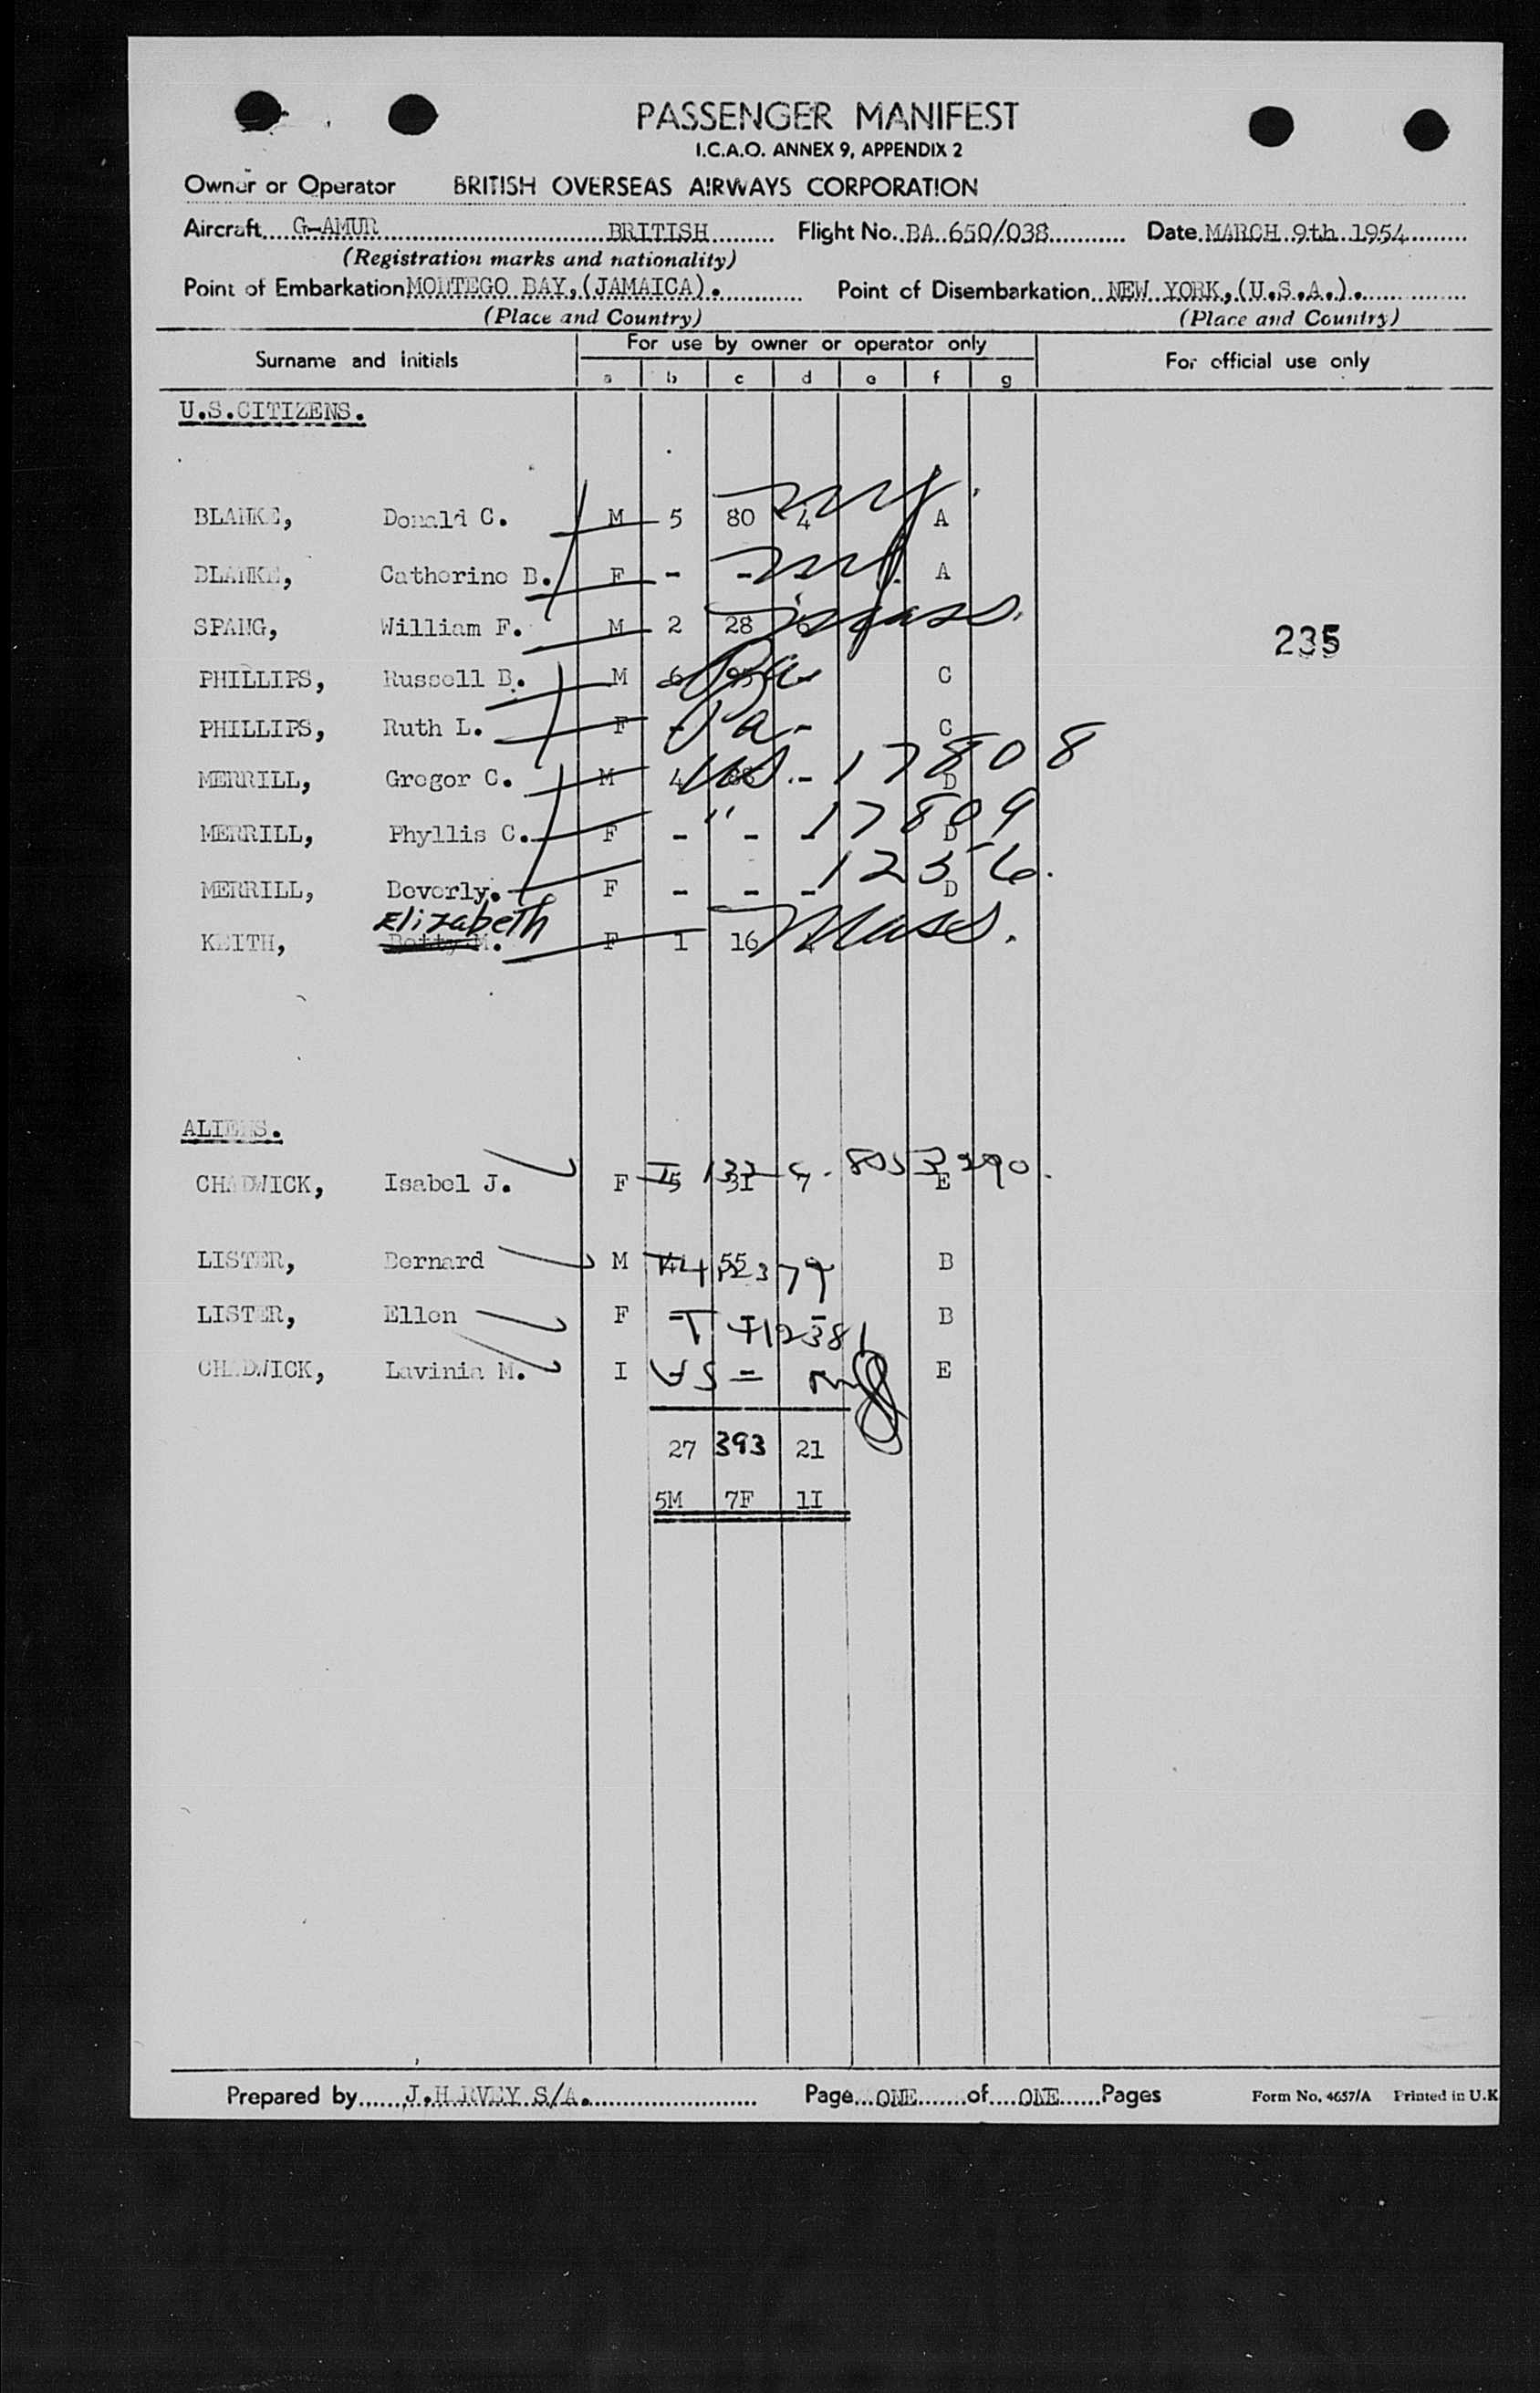 PASSENGER MANIFEST
I.C.A.O. ANNEX 9, APPENDIX 2
Owner or Operator BRITISH OVERSEAS AIRWAYS CORPORATION
Aircraft G-AMUR BRITISH Flight No. BA 650/038 Date MARCH 9th 1954
(Registration marks and nationality)
Point of Embarkation MONTEGO BAY, (JAMAICA). Point of Disembarkation NEW YORK, (U.S.A.).
(Place and Country) (Place and Country)
Surname and initials For use by owner or operator only For official use only
a b c d e f g
U.S.CITIZENS.
BLANKE, Donald C. M 5 80 4 A
BLANKE, Catherine B. F - - A
SPANG, William F. M 2 28 6 Mass.
235
PHILLIPS, Russell B. M 6 95 - C Pa
PHILLIPS, Ruth L. F - - C Pa
MERRILL, Gregor C. M 4 88 - D 17808
MERRILL, Phyllis C. F - " - - D 17809
MERRILL, Beverly. F - - - D 12356.
Elizabeth
KEITH, Betty M. F 1 16 4 Mass.
ALIENS.
CHADWICK, Isabel J. F 5 31 7 E
LISTER, Bernard M 4 55 B
LISTER, Ellen F - - - B
CHADWICK, Lavinia M. I E
27 393 21
5M 7F 1I
Prepared by J.HARVEY S/A. Page ONE of ONE Pages Form No. 4657/A Printed in U.K